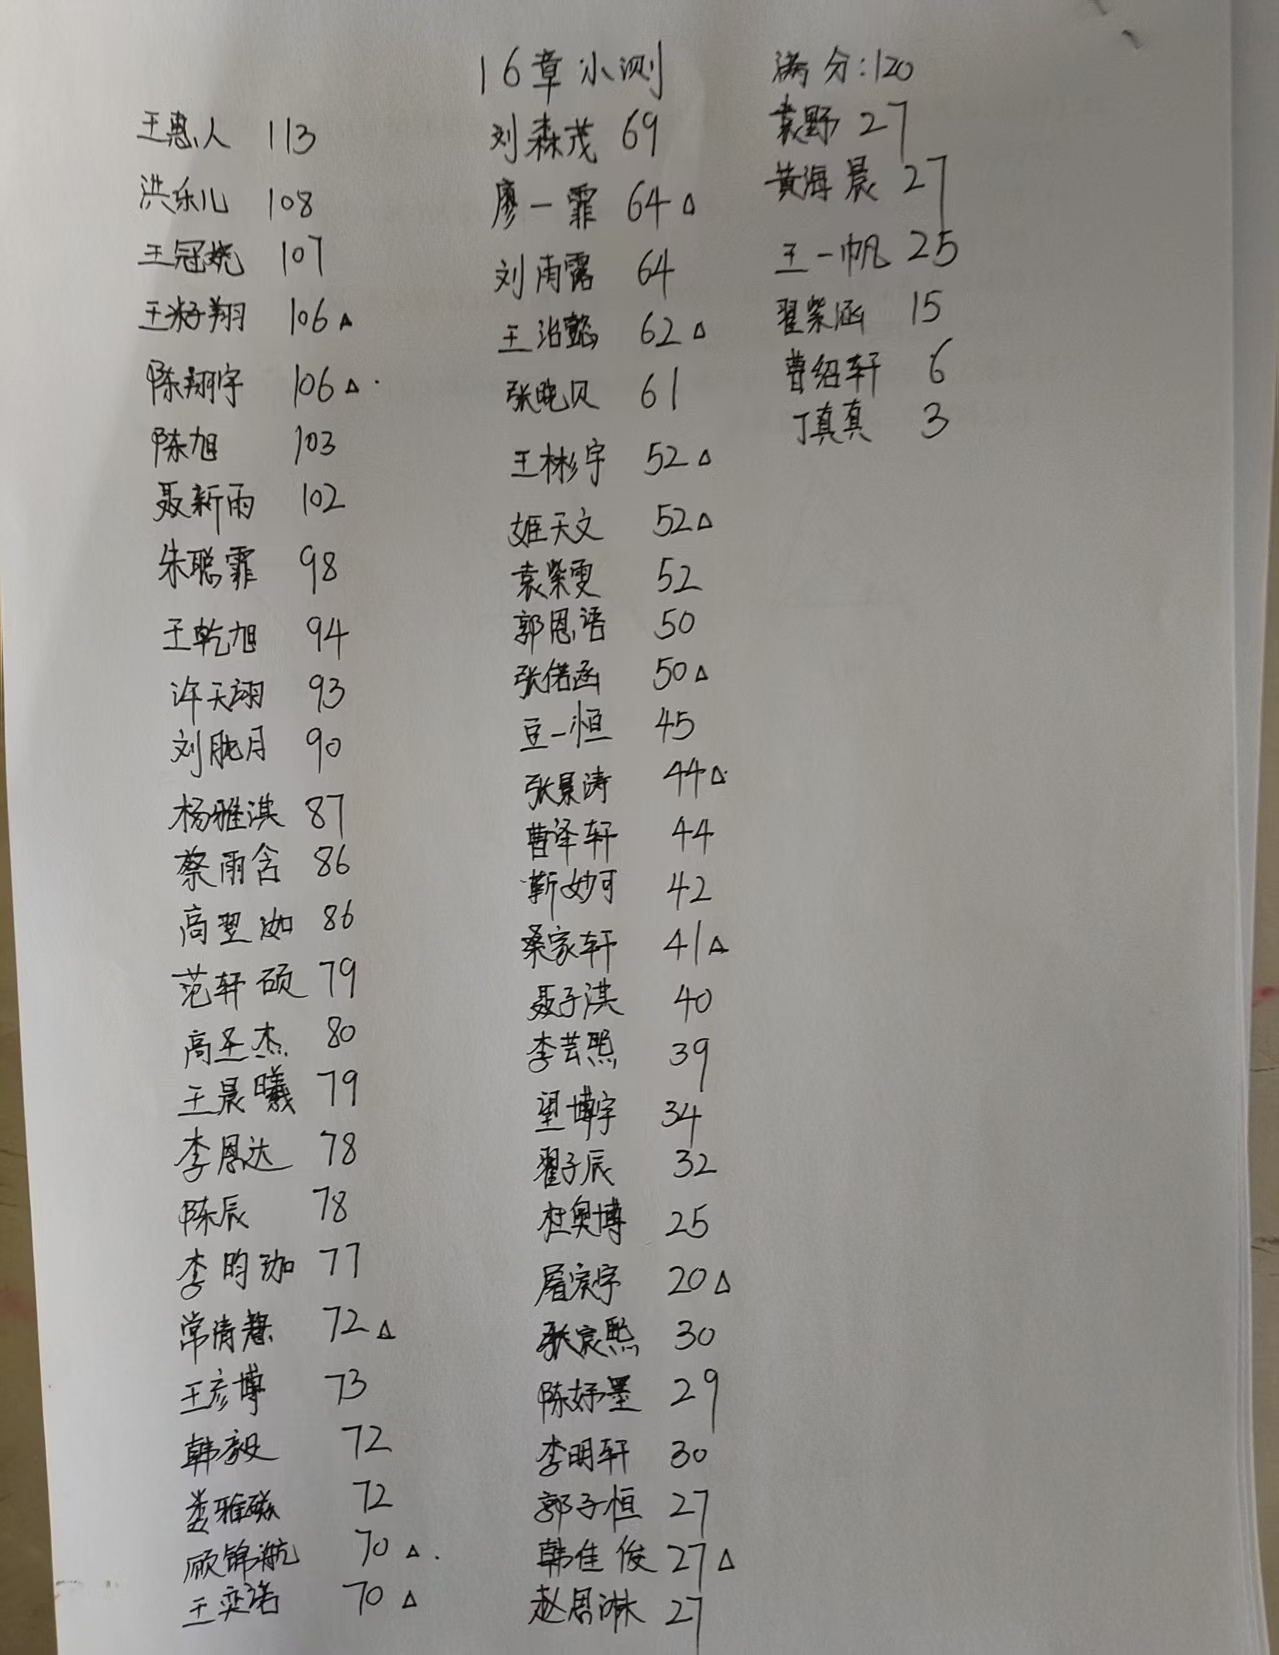 16章小测
满分:120
王惠人 113
洪乐儿 108
王冠娆 107
王籽翔 106△
陈翔宇 106△.
陈旭 103
聂新雨 102
朱聪霏 98
王乾旭 94
许天翊 93
刘胧月 90
杨雅淇 87
蔡雨含 86
高翌 86
范轩硕 79
高圣杰 80
王晨曦 79
李恩达 78
陈辰 78
李昀珈 77
常清慧 72△
王彦博 73
韩毅 72
娄雅 72
顾锦航 70△.
王奕诺 70△
刘森茂 69
廖一霏 64△
刘雨露 64
王治懿 62△
张晚贝 61
王彬宇 52△
姬天文 52△
袁紫雯 52
郭恩语 50
张偌函 50△
豆一恒 45
张景涛 44△
曹泽轩 44
靳妙可 42
桑家轩 41△
聂子淇 40
李芸熙 39
望博宇 34
翟子辰 32
杜奥博 25
屠宸宇 20△
张宸熙 30
陈妤墨 29
李明轩 30
郭子恒 27
韩佳俊 27△
赵恩淋 27
袁野 27
黄海晨 27
王一帆 25
翟紫涵 15
曹绍轩 6
丁真真 3